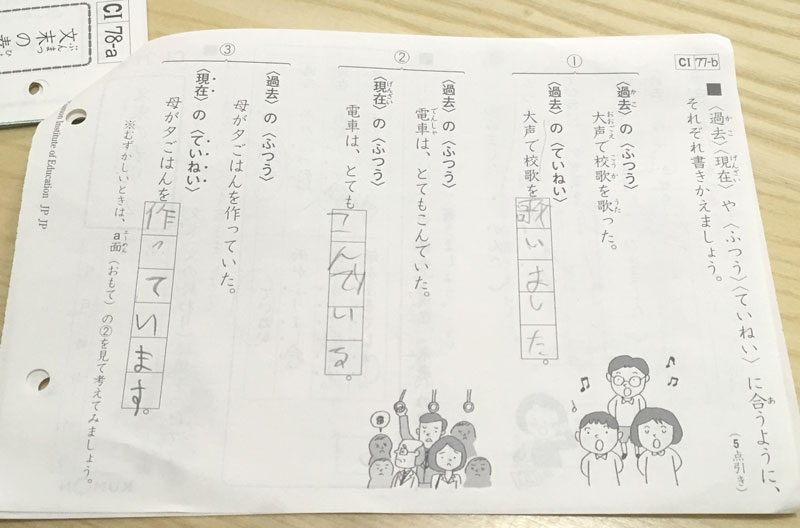 CI 77-b
■〈過去〉〈現在〉や〈ふつう〉〈ていねい〉に合うように、
それぞれ書きかえましょう。
(5点引き)
①
〈過去〉の〈ふつう〉
大声で校歌を歌った。
〈過去〉の〈ていねい〉
大声で校歌を歌いました。
②
〈過去〉の〈ふつう〉
電車は、とてもこんでいた。
〈現在〉の〈ふつう〉
電車は、とてもこんでいる。
③
〈過去〉の〈ふつう〉
母が夕ごはんを作っていた。
〈現在〉の〈ていねい〉
母が夕ごはんを作っています。
※むずかしいときは、a面(おもて)の②を見て考えてみましょう。
Institute of Education JP JP
CI 78-a
文末の